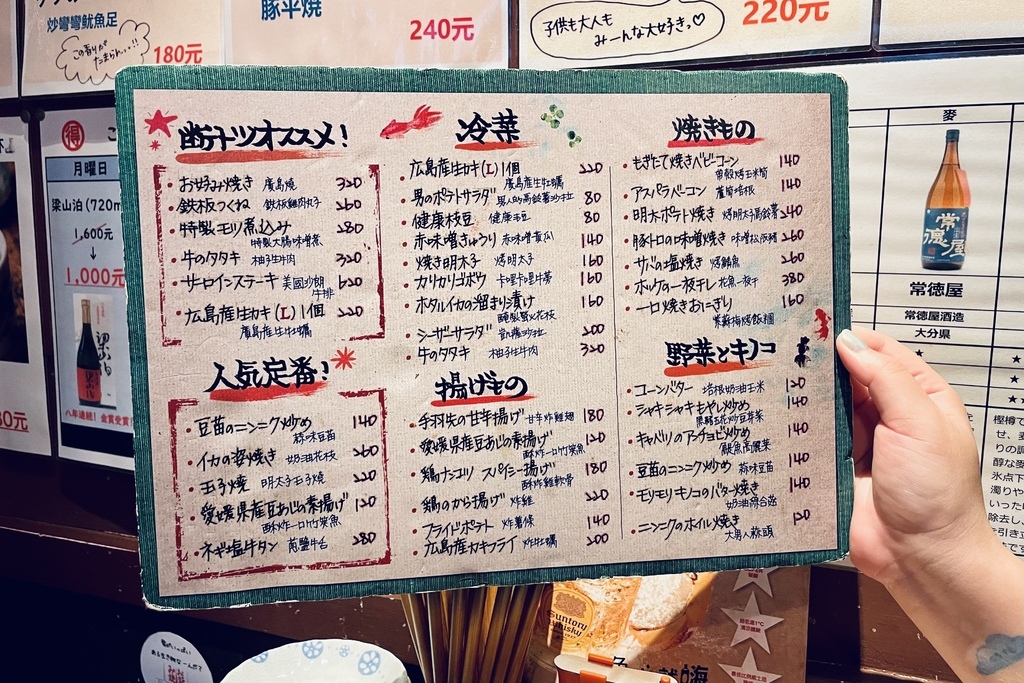 炒彎彎魷魚足
この香りがたまらん…!!
180元
豚平焼
240元
子供も大人も
みーんな大好きっ♡
220元
得
月曜日
梁山泊(720m
1,600元
↓
1,000元
八年連続!金賞受賞
断トツオススメ!
・お好み焼き 廣島燒 320
・鉄板つくね 鉄板雞肉丸子 260
・特製モツ煮込み 280
特製大腸味噌煮
・牛のタタキ 柚子生牛肉 320
・サーロインステーキ 美國沙朗牛排 620
・広島産生カキ(L)1個 220
廣島産生牡蠣
人気定番!
・豆苗のニンニク炒め 140
蒜味豆苗
・イカの姿焼き 奶油花枝 260
・玉子焼 明太子玉子燒 220
・愛媛県産豆あじの素揚げ 120
酥炸一口竹筴魚
・ネギ塩牛タン 蔥鹽牛舌 280
冷菜
・広島産生カキ(L)1個 220
廣島産生牡蠣
・男のポテトサラダ 男人的馬鈴薯沙拉 80
・健康枝豆 健康毛豆 80
・赤味噌きゅうり 赤味噌黃瓜 140
・焼き明太子 烤明太子 160
・カリカリゴボウ 卡哩卡哩牛蒡 160
・ホタルイカの溜まり漬け 160
醃製螢火花枝
・シーザーサラダ 凱薩沙拉 200
・牛のタタキ 柚子生牛肉 320
揚げもの
・手羽先の甘辛揚げ 甘辛炸雞翅 180
・愛媛県産豆あじの素揚げ 120
酥炸一口竹筴魚
・鶏ナンコツ スパイシー揚げ 180
酥炸雞軟骨
・鶏のから揚げ 炸雞 220
・フライドポテト 炸薯條 140
・広島産カキフライ 炸牡蠣 200
焼きもの
・もぎたて焼きベビーコーン 140
帶殼烤玉米筍
・アスパラベーコン 蘆筍培根 140
・明太ポテト焼き 烤明太子馬鈴薯 240
・豚トロの味噌焼き 味噌松阪豬 260
・サバの塩焼き 烤鯖魚 260
・ホッケの一夜干し 花魚一夜干 380
・一口焼きおにぎり 160
紫蘇梅烤飯糰
野菜とキノコ
・コーンバター 培根奶油玉米 120
・シャキシャキもやし炒め 140
・キャベツのアンチョビ炒め 140
鯷魚高麗菜
・豆苗のニンニク炒め 蒜味豆苗 140
・モリモリキノコのバター焼き 140
奶油綜合菇
・ニンニクのホイル焼き 120
大男人蒜頭
麥
常徳屋
常徳屋
常徳屋酒造
大分県
★
Suntory
Whisky